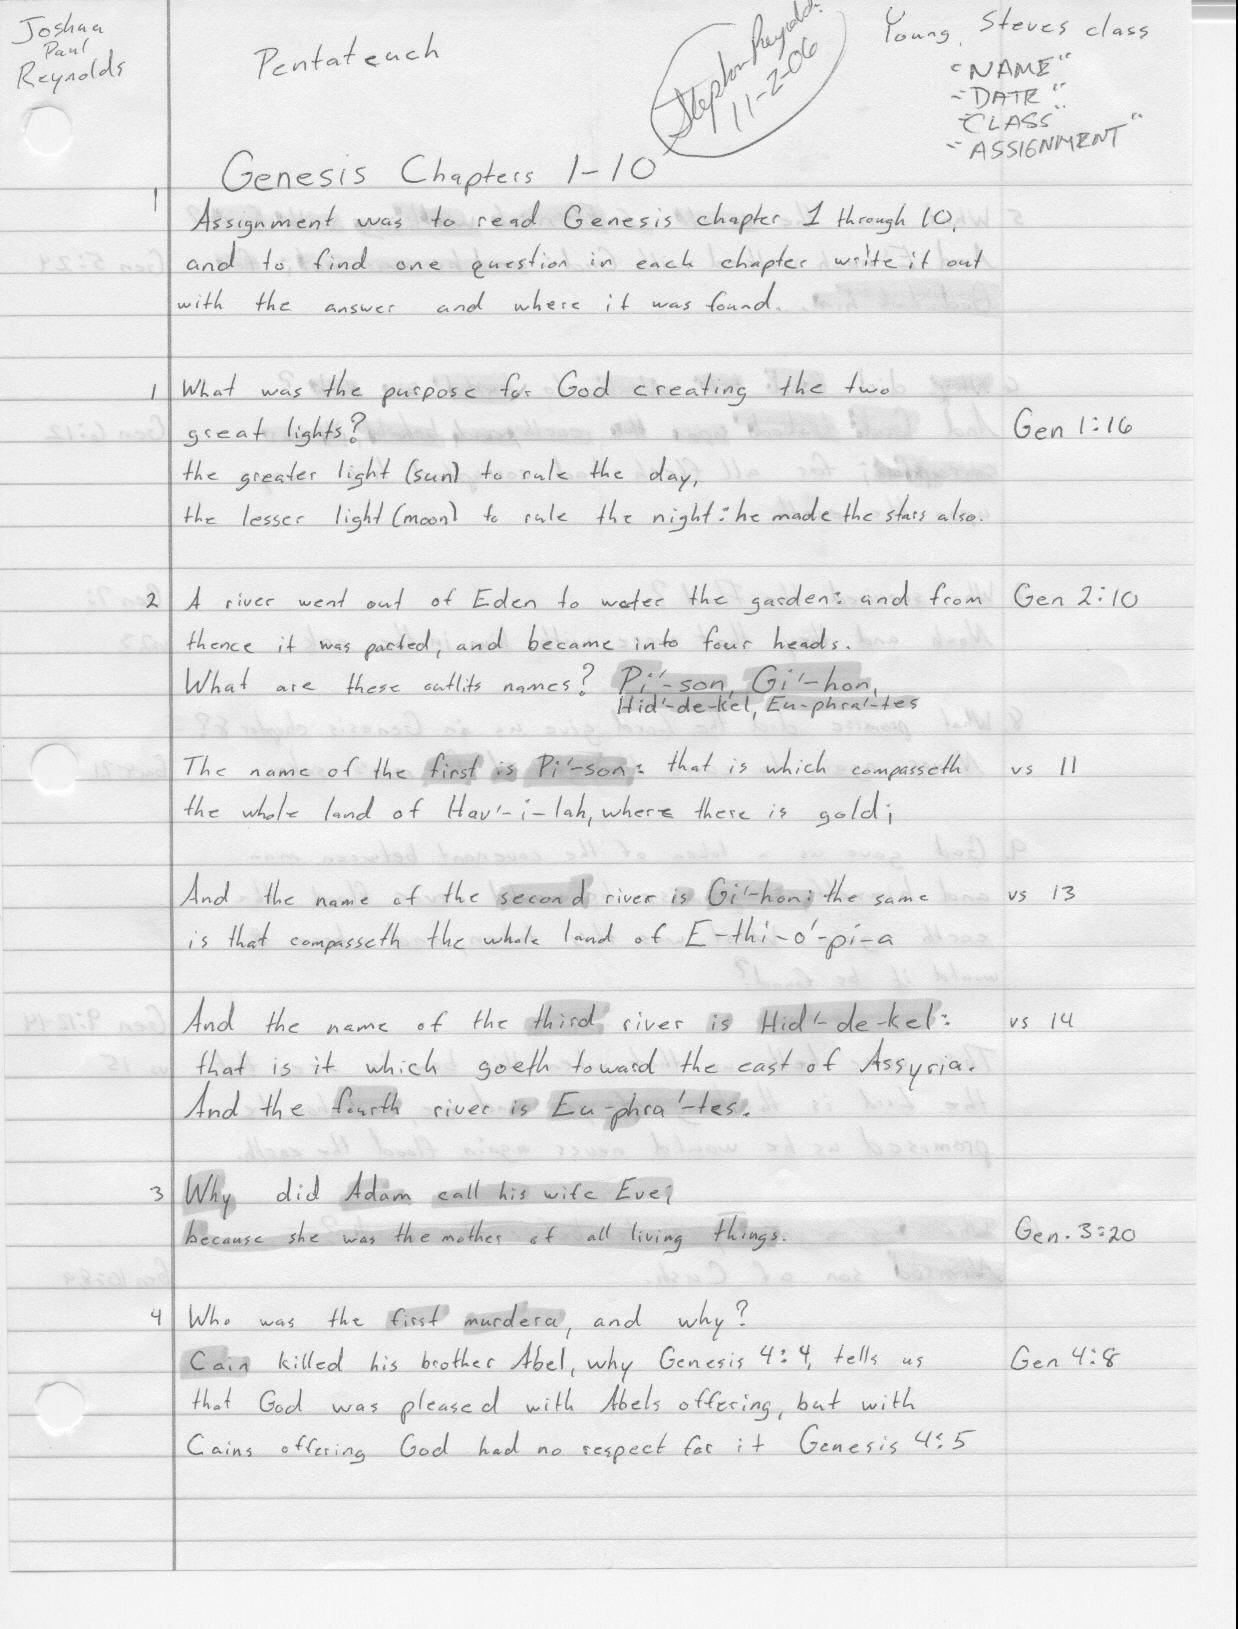 Joshua
Paul
Reynolds
Pentateuch
Stephen Reynolds
11-2-06
Young, Steves class
"NAME"
"DATE"
"CLASS"
"ASSIGNMENT"
Genesis Chapters 1-10
1
Assignment was to read Genesis chapter 1 through 10,
and to find one question in each chapter write it out
with the answer and where it was found.
1 What was the purpose for God creating the two
great lights? Gen 1:16
the greater light (sun) to rule the day,
the lesser light (moon) to rule the night: he made the stars also.
2 A river went out of Eden to water the garden: and from Gen 2:10
thence it was parted, and became into four heads.
What are these outlits names? Pi'-son, Gi'-hon,
Hid'-de-kel, Eu-phra'-tes
The name of the first is Pi'-son: that is which compasseth vs 11
the whole land of Hav'-i-lah, where there is gold;
And the name of the second river is Gi'-hon: the same vs 13
is that compasseth the whole land of E-thi-o'-pi-a
And the name of the third river is Hid'-de-kel: vs 14
that is it which goeth toward the east of Assyria.
And the fourth river is Eu-phra'-tes.
3 Why did Adam call his wife Eve;
because she was the mother of all living things. Gen. 3:20
4 Who was the first murdera, and why?
Cain killed his brother Abel, why Genesis 4:4, tells us Gen 4:8
that God was pleased with Abels offering, but with
Cains offering God had no respect for it Genesis 4:5